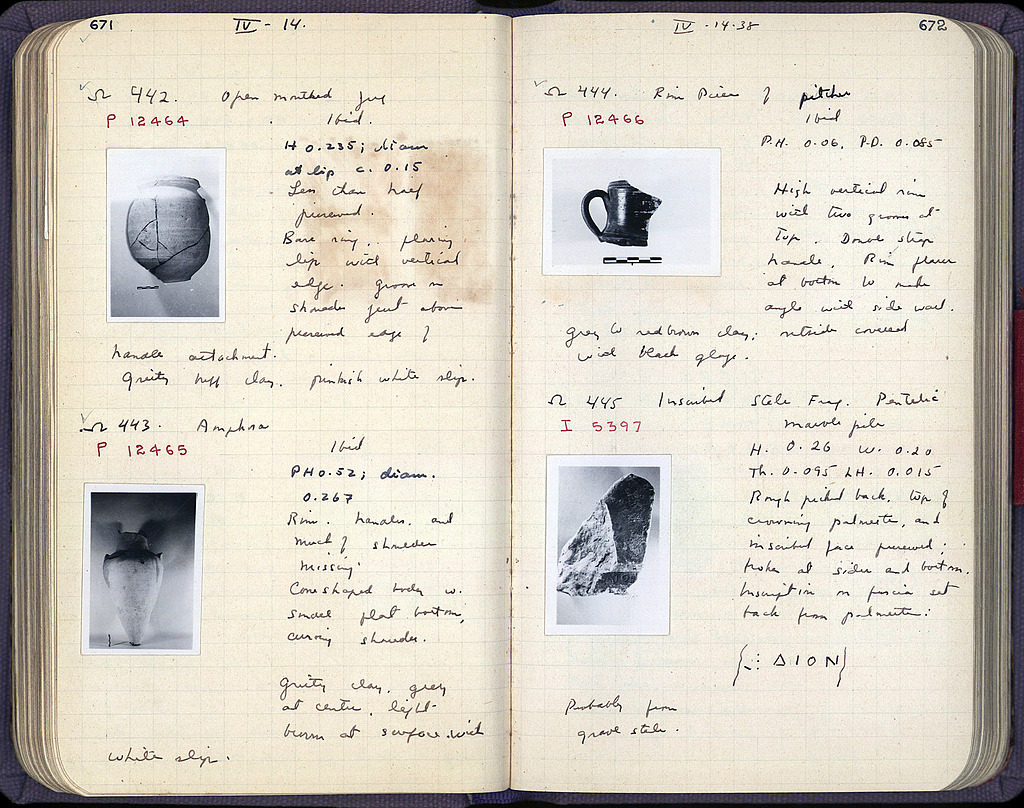 671
IV - 14.
Ω 442. Open mouthed jug
P 12464
Ibid.
H 0.235; diam
at lip c. 0.15
Less than half
preserved.
Base ring, flaring
lip with vertical
edge. groove on
shoulder just above
preserved edge of
handle attachment.
Gritty buff clay. pinkish white slip.
Ω 443. Amphora
P 12465
Ibid
PH 0.52; diam.
0.267
Rim, handles, and
much of shoulder
missing.
Cone shaped body w.
small flat bottom,
curving shoulder.
Gritty clay, grey
at centre, light
brown at surface with
white slip.
IV - 14-38
672
Ω 444. Rim Piece of pitcher
P 12466
Ibid
P.H. 0.06. P.D. 0.085
High vertical rim
with two grooves at
top. Double strap
handle. Rim flares
at bottom to make
angle with side wall.
grey to red brown clay; outside covered
with black glaze.
Ω 445 Inscribed Stele Frag. Pentelic
I 5397
marble pile
H. 0.26 W. 0.20
Th. 0.095 LH. 0.015
Rough picked back, top of
crowning palmette, and
inscribed face preserved;
broken at sides and bottom.
Inscription on fascia set
back from palmette:
ΔΙΟΝ
Probably from
grave stele.